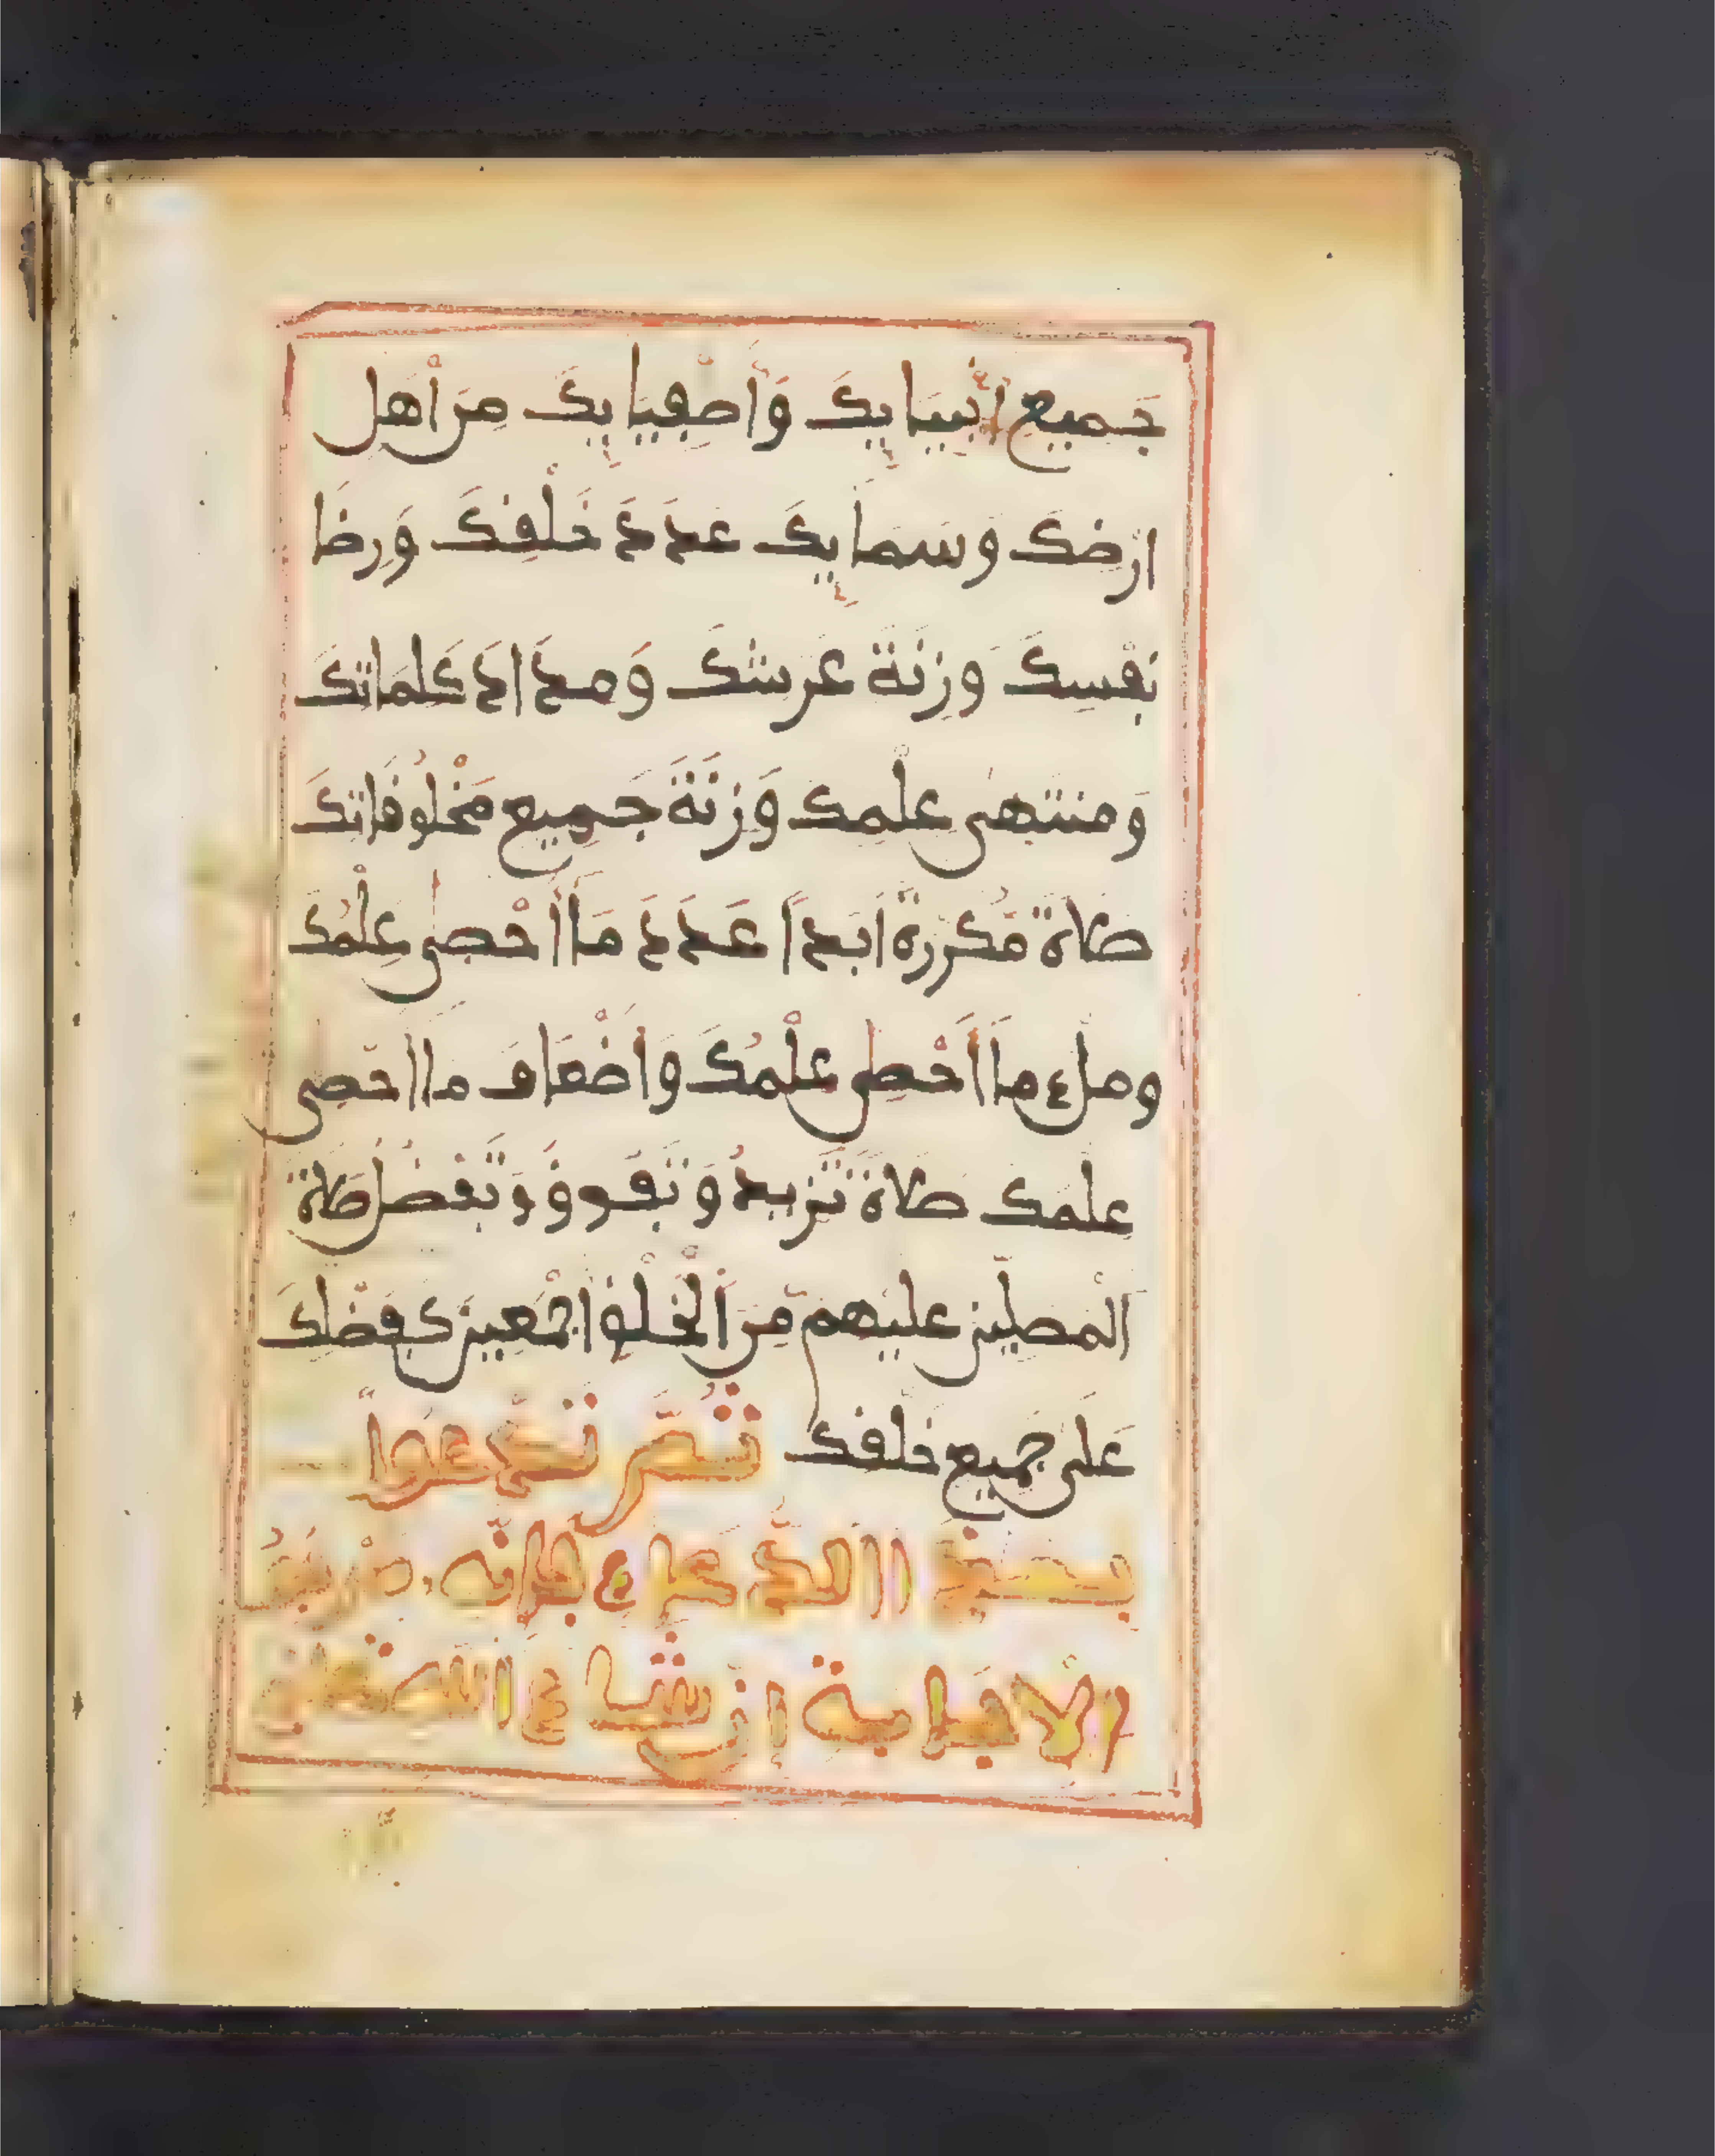 جَميعِ أنْبيَايِكَ وَأَصْفِيَايِكَ مِنَ اهْلِ
ارْضِكَ وَسَمَايِكَ عَدَدَ خَلْفِكَ وَرِضَا
نَفْسِكَ وَزِنَةَ عَرْشِكَ وَمِدَادَ كَلِمَاتِكَ
وَمنتَهىٰ علْمِكَ وَزِنَةَ جَمِيعِ مَخْلُوقَاتِكَ
صَلاةً مُكَرّرةً اَبَداً عَدَدَ مَا أَحْصىٰ عِلْمُكَ
ومِلءَ مَا أَحْصىٰ عِلْمُكَ وَأَضْعَافَ مَا احْصىٰ
علْمُكَ صَلاةً تَزيدُ وَتَفُوقُ وَتَفْضُلُ صَلاةَ
الْمُصلِّينَ عليْهِم مِّنَ الْخَلْقِ اجْمَعِينَ كَفَضْلِكَ
عَلىٰ جَميعِ خَلْفِكَ ثُمَّ تَدْعُواْ
بِهَذَا الدُّعَاءِ فَإِنَّه مَرْجُوُّ
الاِجَابةِ إِن شَاءَ اللهُ تعَالىٰ